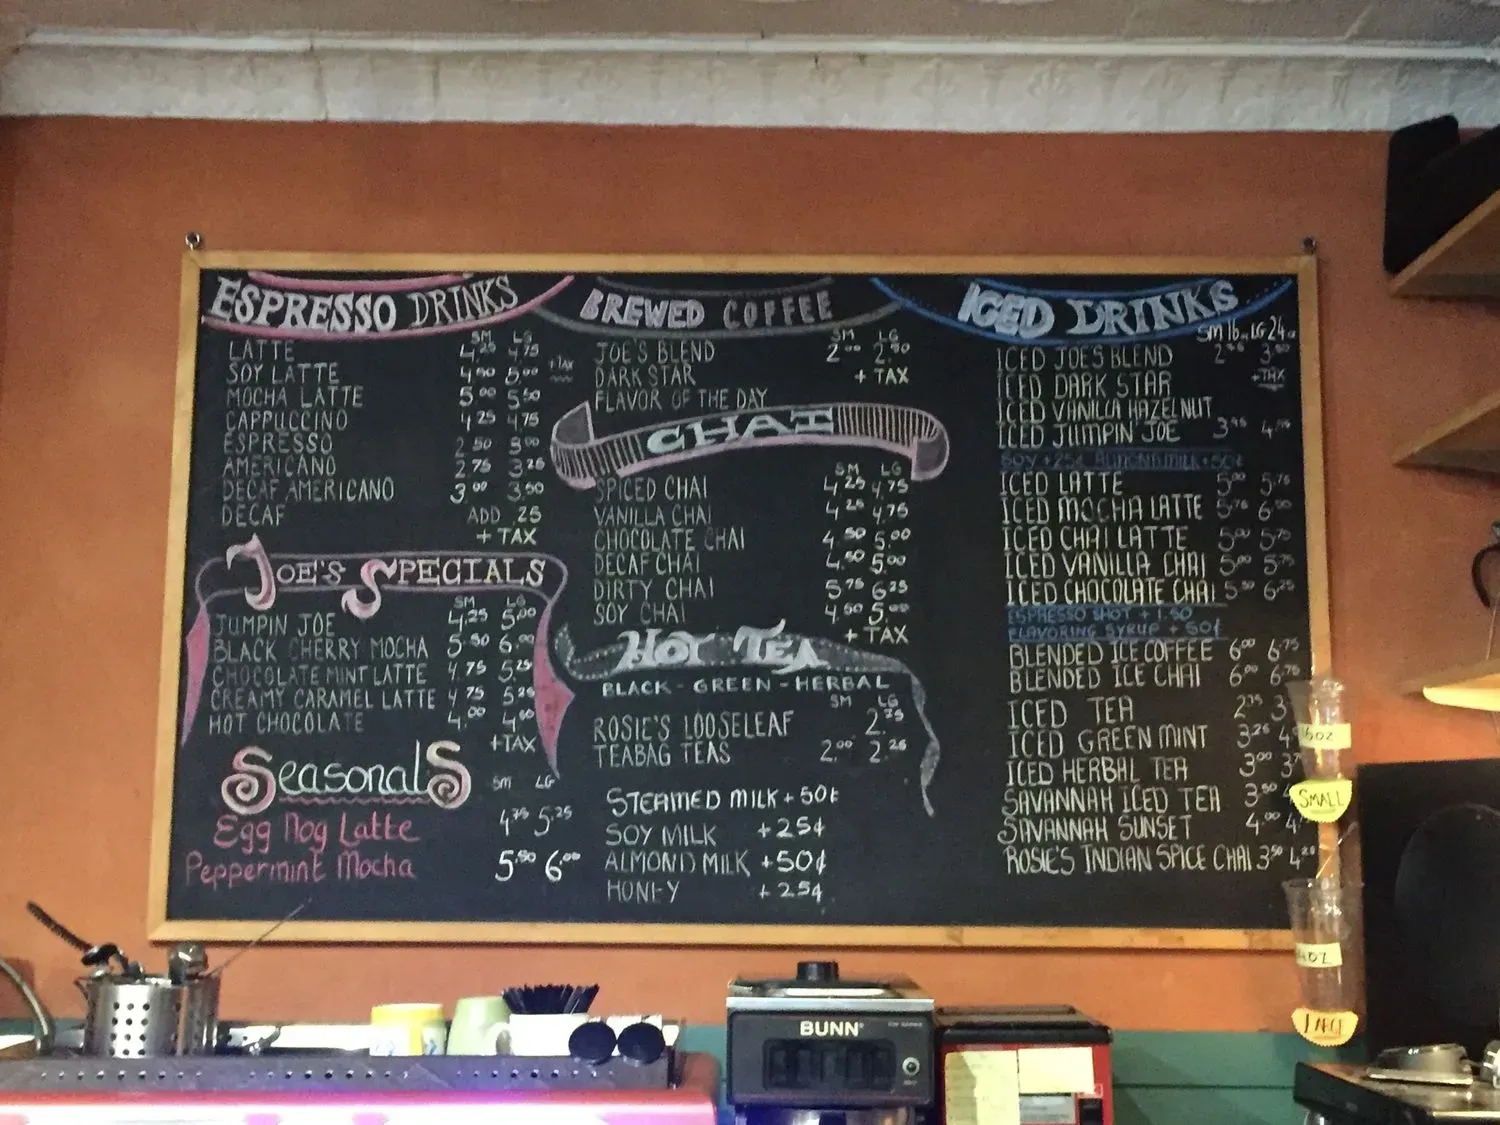 ESPRESSO DRINKS
SM LG
LATTE 4.25 4.75
SOY LATTE 4.50 5.00 +TAX
MOCHA LATTE 5.00 5.50
CAPPUCCINO 4.25 4.75
ESPRESSO 2.50 3.00
AMERICANO 2.75 3.25
DECAF AMERICANO 3.00 3.50
DECAF ADD .25
+ TAX
JOE'S SPECIALS
SM LG
JUMPIN JOE 4.25 5.00
BLACK CHERRY MOCHA 5.50 6.00
CHOCOLATE MINT LATTE 4.75 5.25
CREAMY CARAMEL LATTE 4.75 5.25
HOT CHOCOLATE 4.00 4.50
+TAX
SeasonalS SM LG
Egg Nog Latte 4.75 5.25
Peppermint Mocha 5.50 6.00
BREWED COFFEE
SM LG
JOE'S BLEND 2.00 2.50
DARK STAR + TAX
FLAVOR OF THE DAY
CHAI
SM LG
SPICED CHAI 4.25 4.75
VANILLA CHAI 4.25 4.75
CHOCOLATE CHAI 4.50 5.00
DECAF CHAI 4.50 5.00
DIRTY CHAI 5.75 6.25
SOY CHAI 4.50 5.00
+ TAX
HOT TEA
BLACK - GREEN - HERBAL
SM LG
ROSIE'S LOOSELEAF 2.75
TEABAG TEAS 2.00 2.25
STEAMED MILK + 50¢
SOY MILK +25¢
ALMOND MILK +50¢
HONEY + 25¢
ICED DRINKS
SM 16oz LG 24oz
ICED JOES BLEND
ICED DARK STAR +TAX
ICED VANILLA HAZELNUT
ICED JUMPIN JOE 3.95
SOY +25¢ ALMOND MILK +50¢
ICED LATTE 5.00 5.75
ICED MOCHA LATTE 5.75 6.00
ICED CHAI LATTE 5.00 5.75
ICED VANILLA CHAI 5.00 5.75
ICED CHOCOLATE CHAI 5.50 6.25
ESPRESSO SHOT + 1.50
FLAVORING SYRUP + 50¢
BLENDED ICE COFFEE 6.00 6.75
BLENDED ICE CHAI 6.00 6.75
ICED TEA 2.75
ICED GREEN MINT 3.25
ICED HERBAL TEA 3.00
SAVANNAH ICED TEA 3.50
SAVANNAH SUNSET 4.00
ROSIE'S INDIAN SPICE CHAI 3.50 4.25
16OZ
SMALL
24OZ
LARGE
BUNN